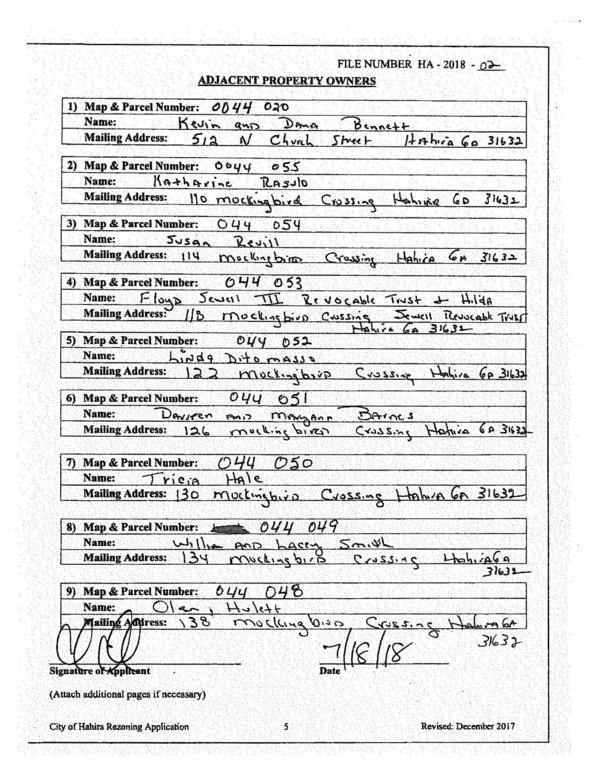 FILE NUMBER HA - 2018 - 02
ADJACENT PROPERTY OWNERS
1) Map & Parcel Number: 0044 020
Name: Kevin and Dana Bennett
Mailing Address: 512 N Church Street Hahira Ga 31632
2) Map & Parcel Number: 0044 055
Name: Katharine Rasulo
Mailing Address: 110 mockingbird Crossing Hahira Ga 31632
3) Map & Parcel Number: 044 054
Name: Susan Revill
Mailing Address: 114 mockingbird Crossing Hahira GA 31632
4) Map & Parcel Number: 044 053
Name: Floyd Sewell III Revocable Trust & Hilda
Mailing Address: 118 mockingbird Crossing Sewell Revocable Trust
Hahira Ga 31632
5) Map & Parcel Number: 044 052
Name: Linda Ditomasso
Mailing Address: 122 mockingbird Crossing Hahira Ga 31632
6) Map & Parcel Number: 044 051
Name: and Maryann Barnes
Mailing Address: 126 mockingbird Crossing Hahira GA 31632
7) Map & Parcel Number: 044 050
Name: Tricia Hale
Mailing Address: 130 Mockingbird Crossing Hahira GA 31632
8) Map & Parcel Number: 044 049
Name: William AND Lacey Smith
Mailing Address: 134 mockingbird Crossing Hahira Ga
31632
9) Map & Parcel Number: 044 048
Name: Olen, Hulett
Mailing Address: 138 mockingbird Crossing Hahira GA
31632
7/18/18
Signature of Applicant Date
(Attach additional pages if necessary)
City of Hahira Rezoning Application 5 Revised: December 2017